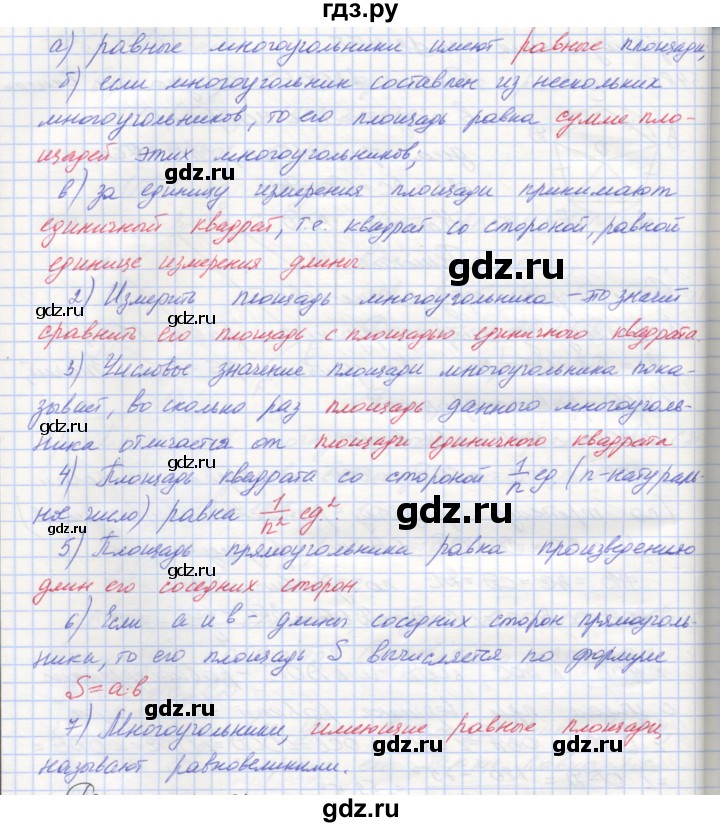 гдз.ру
а) равные многоугольники имеют равные площади;
б) если многоугольник составлен из нескольких
многоугольников, то его площадь равна сумме пло-
щадей этих многоугольников;
в) за единицу измерения площади принимают
единичный квадрат, т.е. квадрат со стороной, равной
единице измерения длины.
gdz.ru
2) Измерить площадь многоугольника – то значит
gdz.ru
gdz.ru
сравнить его площадь с площадью единичного квадрата.
3) Числовое значение площади многоугольника пока-
зывает, во сколько раз площадь данного многоуголь-
ника отличается от площади единичного квадрата
gdz.ru
4) Площадь квадрата со стороной 1/n ед (n-натураль-
ное число) равна 1/n² ед²
gdz.ru
5) Площадь прямоугольника равна произведению
длин его соседних сторон.
gdz.ru
6) Если а и в – длины соседних сторон прямоуголь-
gdz.ru
ника, то его площадь S вычисляется по формуле
S=a·в
gdz.ru
7) Многоугольники, имеющие равные площади,
gdz.ru
gdz.ru
называют равновеликими.
gdz.ru
gdz.ru